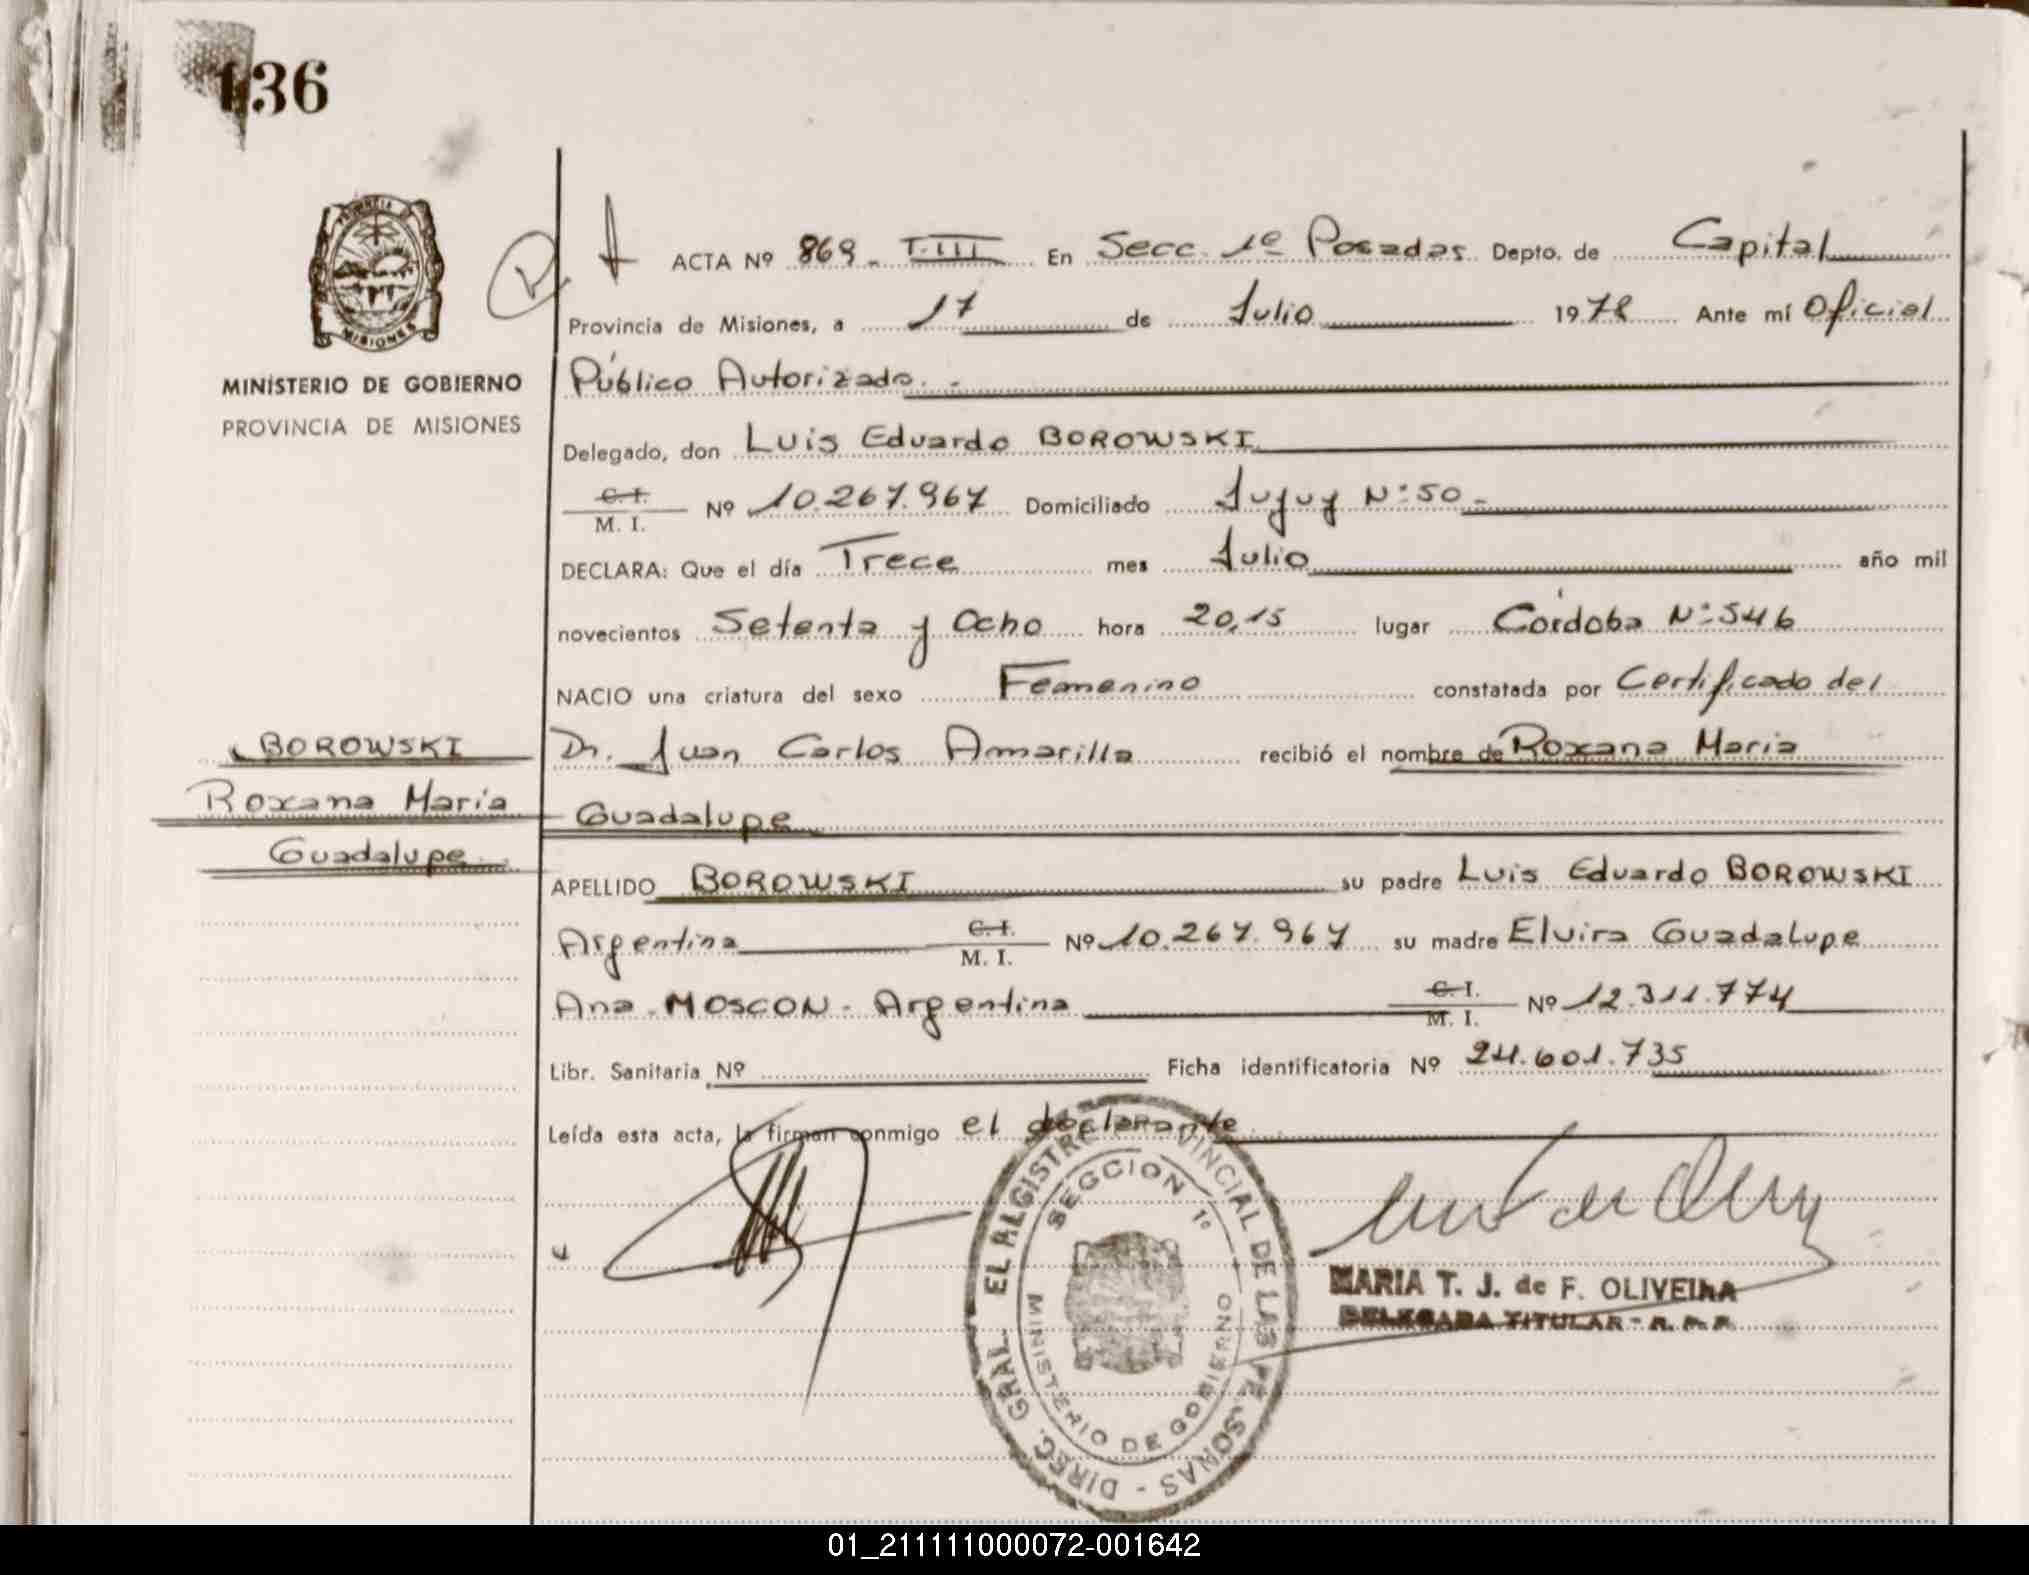 136
PROVINCIA DE
MISIONES
MINISTERIO DE GOBIERNO
PROVINCIA DE MISIONES
ACTA Nº 869 - T-III En Secc. 1º Posadas Depto. de Capital
Provincia de Misiones, a 17 de Julio 1978 Ante mí Oficial
Público Autorizado. -
Delegado, don Luis Eduardo BOROWSKI
C. I. / M. I. Nº 10.267.967 Domiciliado Jujuy Nº 50 -
DECLARA: Que el día Trece mes Julio año mil
novecientos Setenta y Ocho hora 20,15 lugar Córdoba Nº 546
NACIO una criatura del sexo Femenino constatada por Certificado del
Dr. Juan Carlos Amarilla recibió el nombre de Roxana María
Guadalupe
BOROWSKI
Roxana María
Guadalupe
APELLIDO BOROWSKI su padre Luis Eduardo BOROWSKI
Argentina C. I. / M. I. Nº 10.267.967 su madre Elvira Guadalupe
Ana - MOSCON - Argentina C. I. / M. I. Nº 12.311.774
Libr. Sanitaria Nº Ficha identificatoria Nº 24.601.735
Leída esta acta, la firman conmigo el declarante
DIREC. GRAL. PROVINCIAL DE LAS PERSONAS -
SECCION 1º
MINISTERIO DE GOBIERNO
MARIA T. J. de F. OLIVEIRA
DELEGADA TITULAR - R. P. P.
01_211111000072-001642